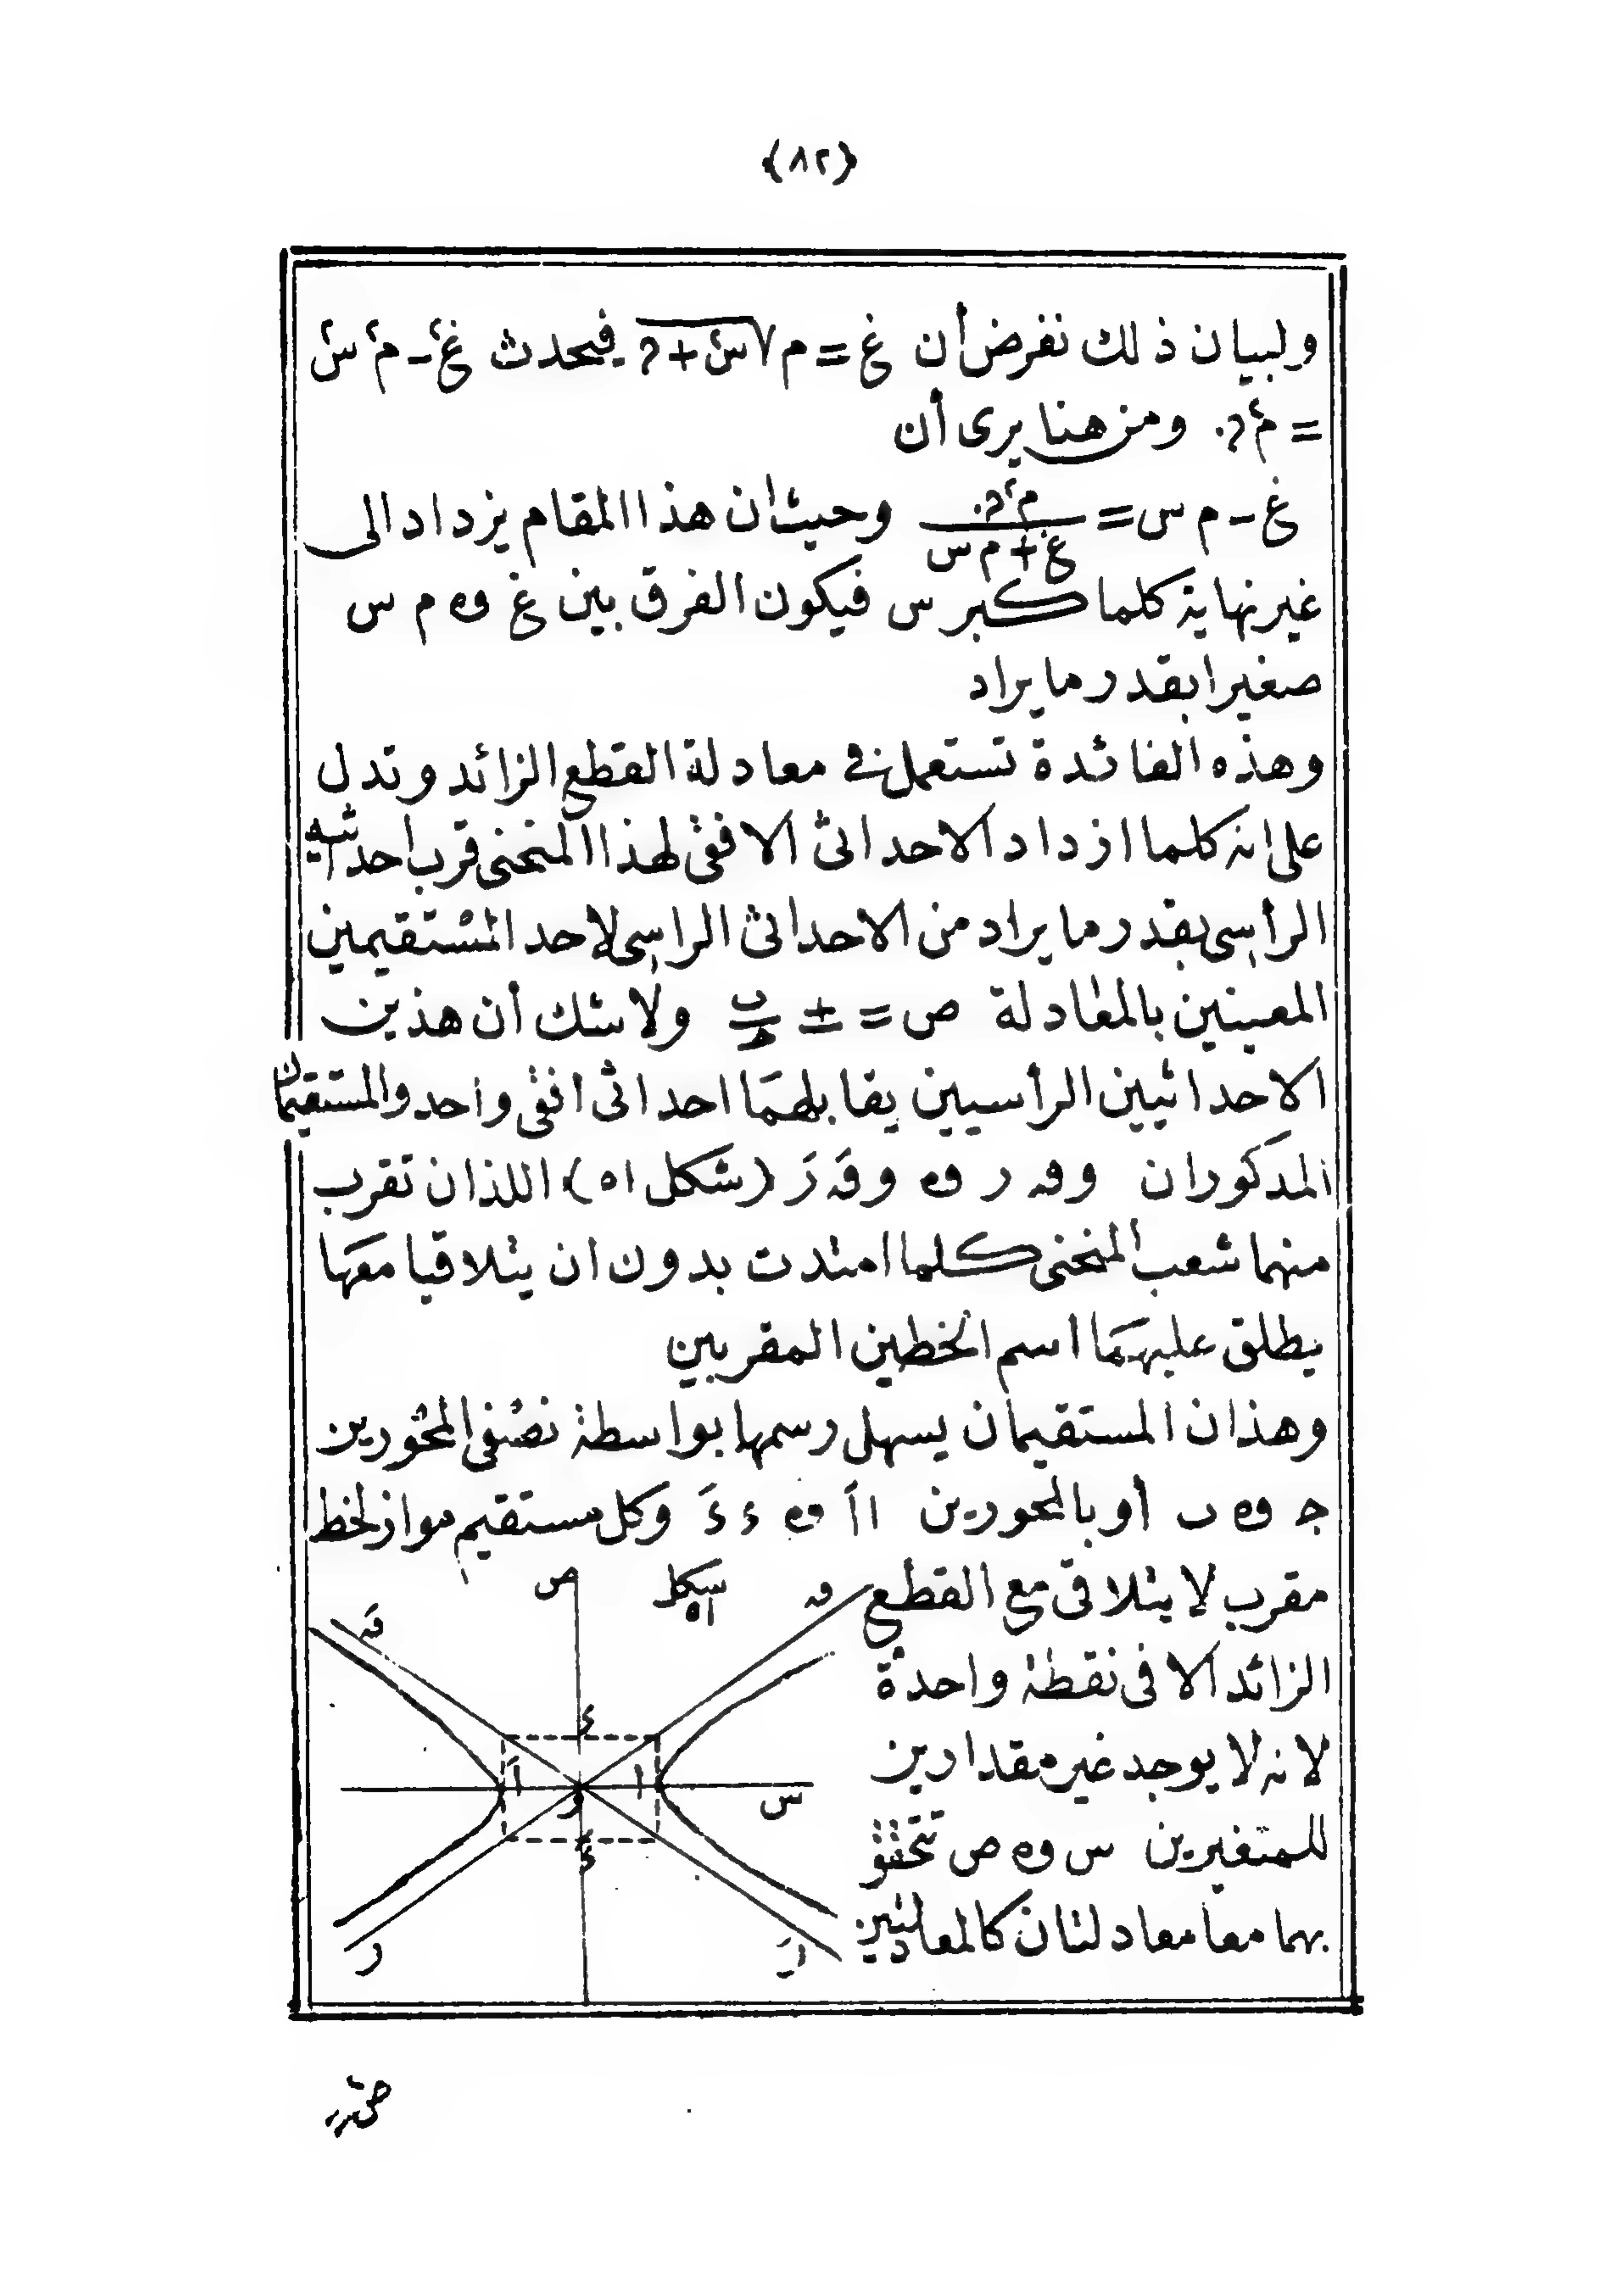 ﴿٨٢﴾
ولبيان ذلك نفرض أن غ = م √س٢ + د فيحدث غ٢ - م٢ س٢
= م٢ د . ومن هنا يرى أن
غ - م س = م٢ د / غ + م س وحيث ان هذا المقام يزداد الى
غير نهاية كلما كبر س فيكون الفرق بين غ و م س
صغيرا بقدر ما يراد
وهذه الفائدة تستعمل في معادلة القطع الزائد وتدل
على انه كلما ازداد الاحداثى الافقى لهذا المنحنى قرب احداثيه
الرأسى بقدر ما يراد من الاحداثى الراسى لاحد المستقيمين
المعينين بالمعادلة ص = ± ب/ح ولا شك أن هذين
الاحداثيين الرأسيين يقابلهما احداثى افقى واحد والمستقيمان
المذكوران و ق ر و وقَ رَ (شكل ٥١) اللذان تقرب
منهما شعب المنحنى كلما امتدت بدون ان يتلاقيا معها
يطلق عليهما اسم الخطين المقربين
وهذان المستقيمان يسهل رسمها بواسطة نصفى المحورين
ج و ب أو بالمحورين ا اَ و ء ءَ وكل مستقيم مواز لخط
مقرب لا يتلاقى مع القطع
الزائد الا فى نقطة واحدة
لانه لا يوجد غير مقدارين
للمتغيرين س و ص تتحقق
بهما معا معادلتان كالمعادلتين
شكل ٥١
ص
ق
قَ
ء
ا
اَ
و
س
ءَ
ر
رَ